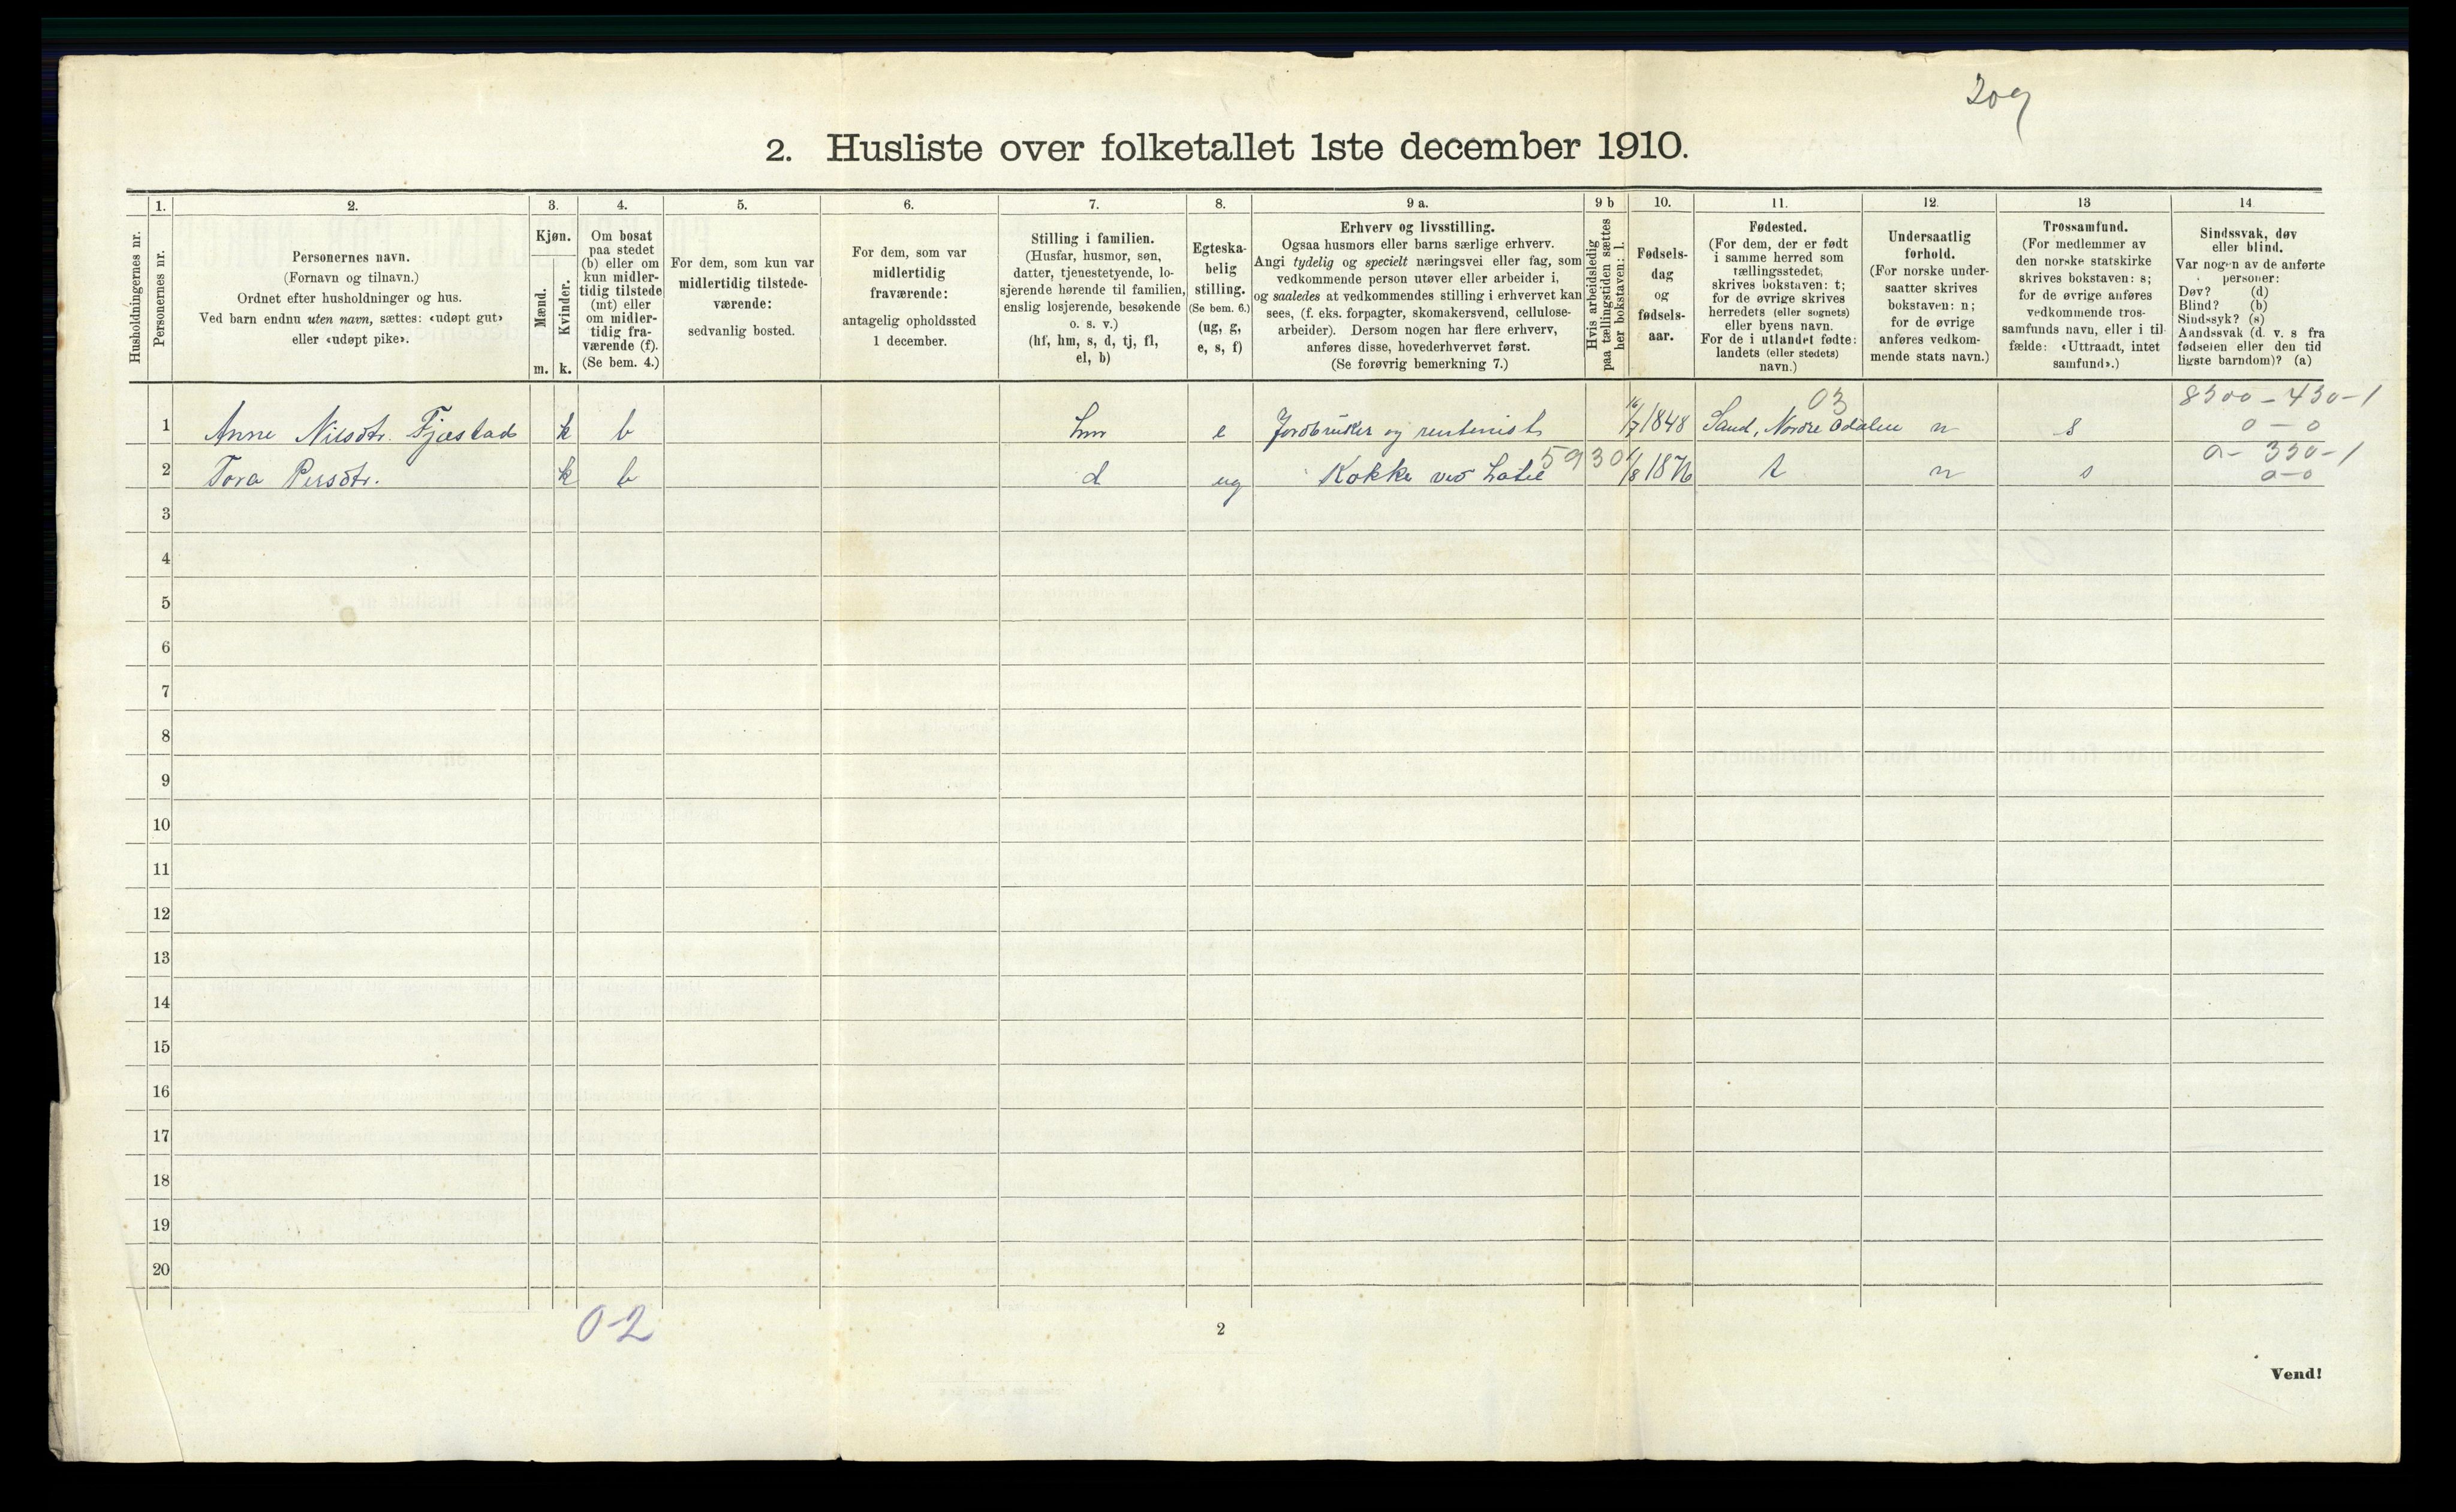 209
2. Husliste over folketallet 1ste december 1910.
Husholdningernes nr.
1.
Personernes nr.
2.
Personernes navn.
(Fornavn og tilnavn.)
Ordnet efter husholdninger og hus.
Ved barn endnu uten navn, sættes: «udøpt gut»
eller «udøpt pike».
3.
Kjøn.
Mænd.
Kvinder.
m. k.
4.
Om bosat
paa stedet
(b) eller om
kun midler-
tidig tilstede
(mt) eller
om midler-
tidig fra-
værende (f).
(Se bem. 4.)
5.
For dem, som kun var
midlertidig tilstede-
værende:
sedvanlig bosted.
6.
For dem, som var
midlertidig
fraværende:
antagelig opholdssted
1 december.
7.
Stilling i familien.
(Husfar, husmor, søn,
datter, tjenestetyende, lo-
sjerende hørende til familien,
enslig losjerende, besøkende
o. s. v.)
(hf, hm, s, d, tj, fl,
el, b)
8.
Egteska-
belig
stilling.
(Se bem. 6.)
(ug, g,
e, s, f)
9 a.
Erhverv og livsstilling.
Ogsaa husmors eller barns særlige erhverv.
Angi tydelig og specielt næringsvei eller fag, som
vedkommende person utøver eller arbeider i,
og saaledes at vedkommendes stilling i erhvervet kan
sees, (f. eks. forpagter, skomakersvend, cellulose-
arbeider). Dersom nogen har flere erhverv,
anføres disse, hovederhvervet først.
(Se forøvrig bemerkning 7.)
9 b
Hvis arbeidsledig
paa tællingstiden sættes
her bokstaven: l.
10.
Fødsels-
dag
og
fødsels-
aar.
11.
Fødested.
(For dem, der er født
i samme herred som
tællingsstedet,
skrives bokstaven: t;
for de øvrige skrives
herredets (eller sognets)
eller byens navn.
For de i utlandet fødte:
landets (eller stedets)
navn.)
12.
Undersaatlig
forhold.
(For norske under-
saatter skrives
bokstaven: n;
for de øvrige
anføres vedkom-
mende stats navn.)
13
Trossamfund.
(For medlemmer av
den norske statskirke
skrives bokstaven: s;
for de øvrige anføres
vedkommende tros-
samfunds navn, eller i til-
fælde: «Uttraadt, intet
samfund».)
14
Sindssvak, døv
eller blind.
Var nogen av de anførte
personer:
Døv? (d)
Blind? (b)
Sindssyk? (s)
Aandssvak (d. v. s fra
fødselen eller den tid
ligste barndom)? (a)
03 8300 - 430-1
1 Anne Nilsdtr. Fjæstad k b hm e Jordbruker og rentenist 16/7 1848 Sand, Nordre Odalen n s 0 - 0
5930 a- 330-1
2 Tora Persdtr. k b d ug Kokke ved hotel 1/8 1876 t n s 0-0
3
4
5
6
7
8
9
10
11
12
13
14
15
16
17
18
19
20
0-2
2
Vend!